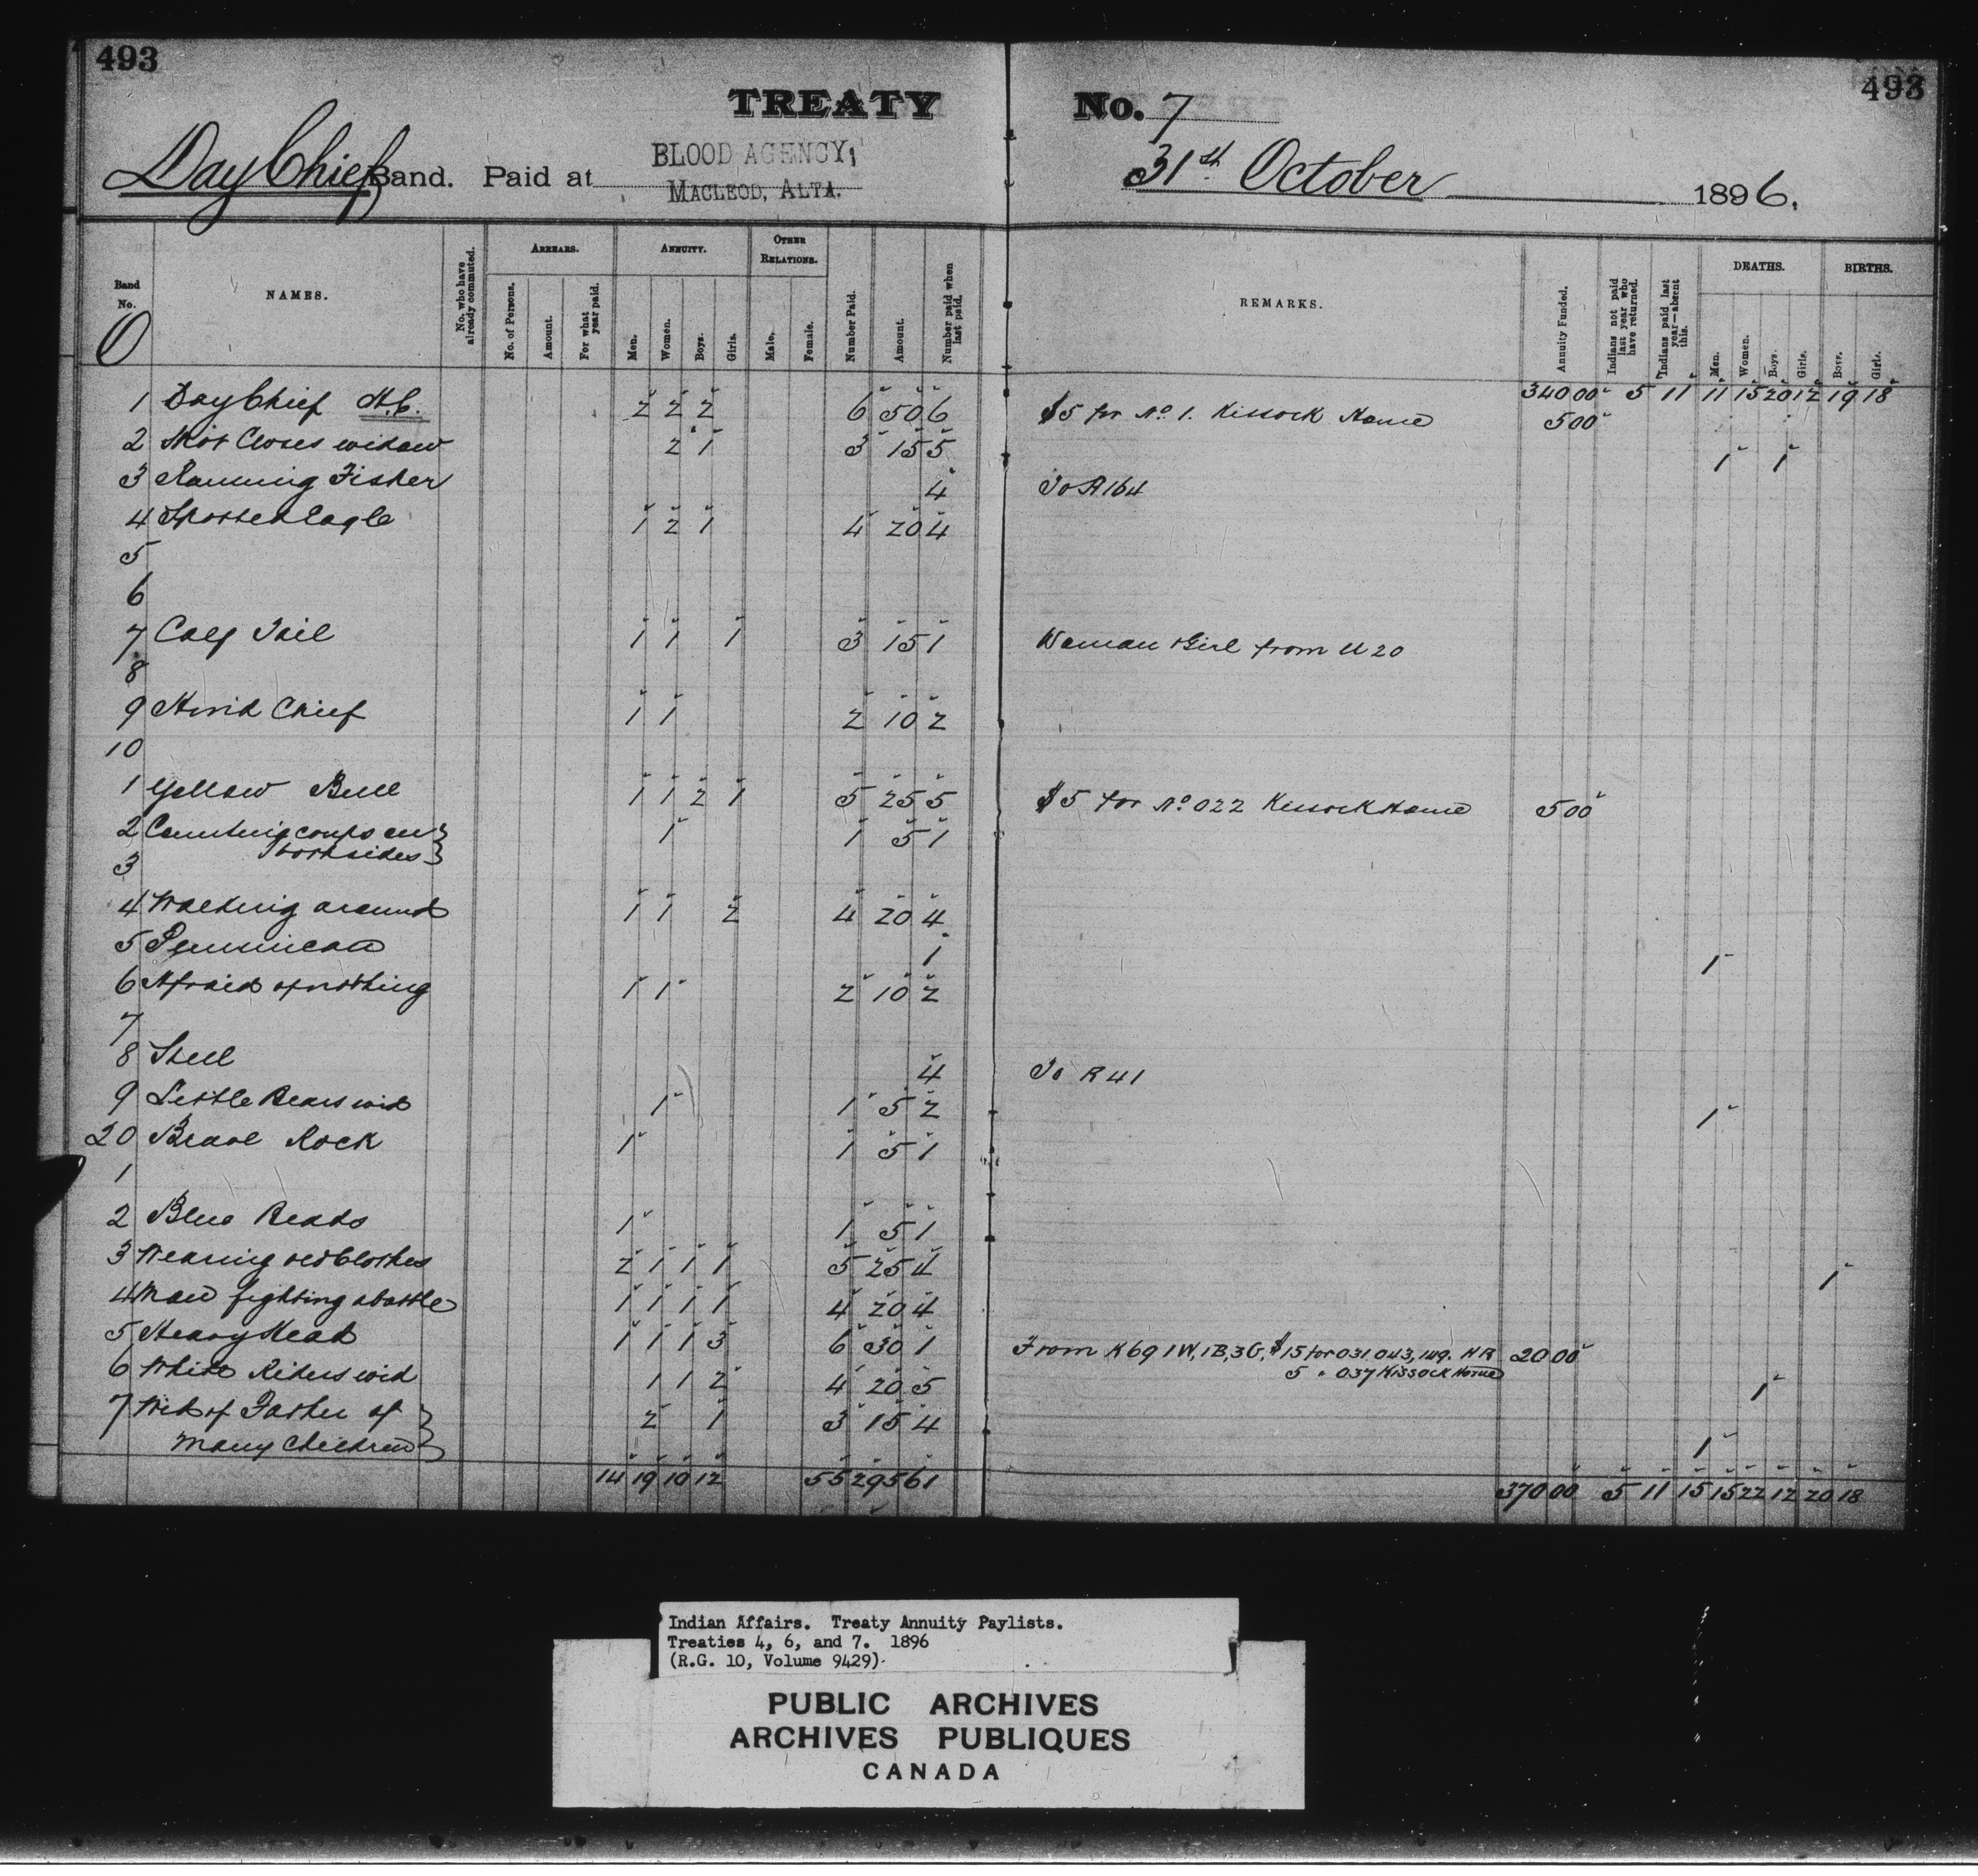 493
493
TREATY No. 7
Day Chief Band. Paid at BLOOD AGENCY, 31st October 1896.
MACLEOD, ALTA.
Band No. O
NAMES.
No. who have already commuted.
ARREARS.
No. of Persons.
Amount.
For what year paid.
ANNUITY.
Men.
Women.
Boys.
Girls.
OTHER RELATIONS.
Male.
Female.
Number Paid.
Amount.
Number paid when last paid.
REMARKS.
Annuity Funded.
Indians not paid last year who have returned.
Indians paid last year—absent this.
DEATHS.
Men.
Women.
Boys.
Girls.
BIRTHS.
Boys.
Girls.
340 00 5 11 11 15 20 12 19 18
1 Day Chief H.C. 2 2 2 6 50 6 $5 for No 1. Kissock Home 5 00
2 Shot Close's widow 2 1 3 15 5 1 1
3 Running Fisher 4 To A 164
4 Spotted Eagle 1 2 1 4 20 4
5
6
7 Calf Tail 1 1 1 3 15 1 Woman & Girl from U 20
8
9 Hind Chief 1 1 2 10 2
10
1 Yellow Bull 1 1 2 1 5 25 5 $5 for No 022 Kissock Home 5 00
2 Counting coups on 1 1 5 1
both sides
3
4 Walking around 1 1 2 4 20 4
5 Pemmican 1 1
6 Afraid of nothing 1 1 2 10 2
7
8 Steel 4 To R 41
9 Little Bears wid 1 1 5 2 1
20 Brave Rock 1 1 5 1
1
2 Blue Beads 1 1 5 1
3 Wearing old Clothes 2 1 1 1 5 25 4 1
4 Man fighting a battle 1 1 1 1 4 20 4
5 Heavy Head 1 1 1 3 6 30 1 From K 69 1W, 1B, 3G, $15 for 031, 043, 149. H R 20 00
5 " 037 Kissock Home
6 White Riders wid 1 1 2 4 20 5 1
7 Wid of Father of 2 1 3 15 4
Many Children 1
14 19 10 12 55 295 61 370 00 5 11 15 15 22 12 20 18
Indian Affairs. Treaty Annuity Paylists.
Treaties 4, 6, and 7. 1896
(R.G. 10, Volume 9429)
PUBLIC ARCHIVES
ARCHIVES PUBLIQUES
CANADA